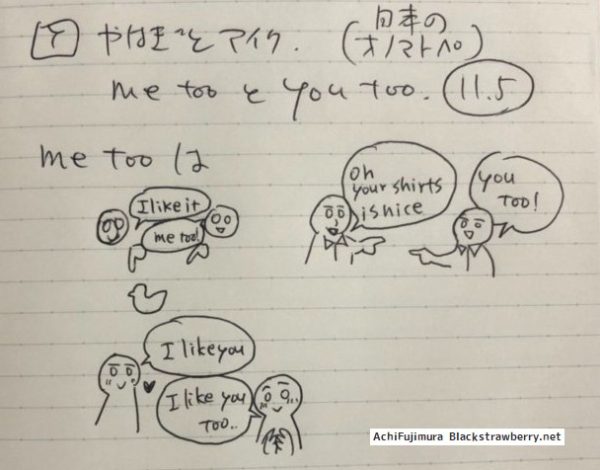 Y やはぎっと マイク. (日本の
オノマトペ)
me too と you too. 11.5
me too は
I like it
me too!
Oh
your shirts
is nice
you
Too!
I like you
I like you
Too..
AchiFujimura Blackstrawberry.net